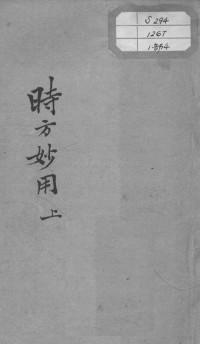 S 294
1267
1-部4
時方妙用 上